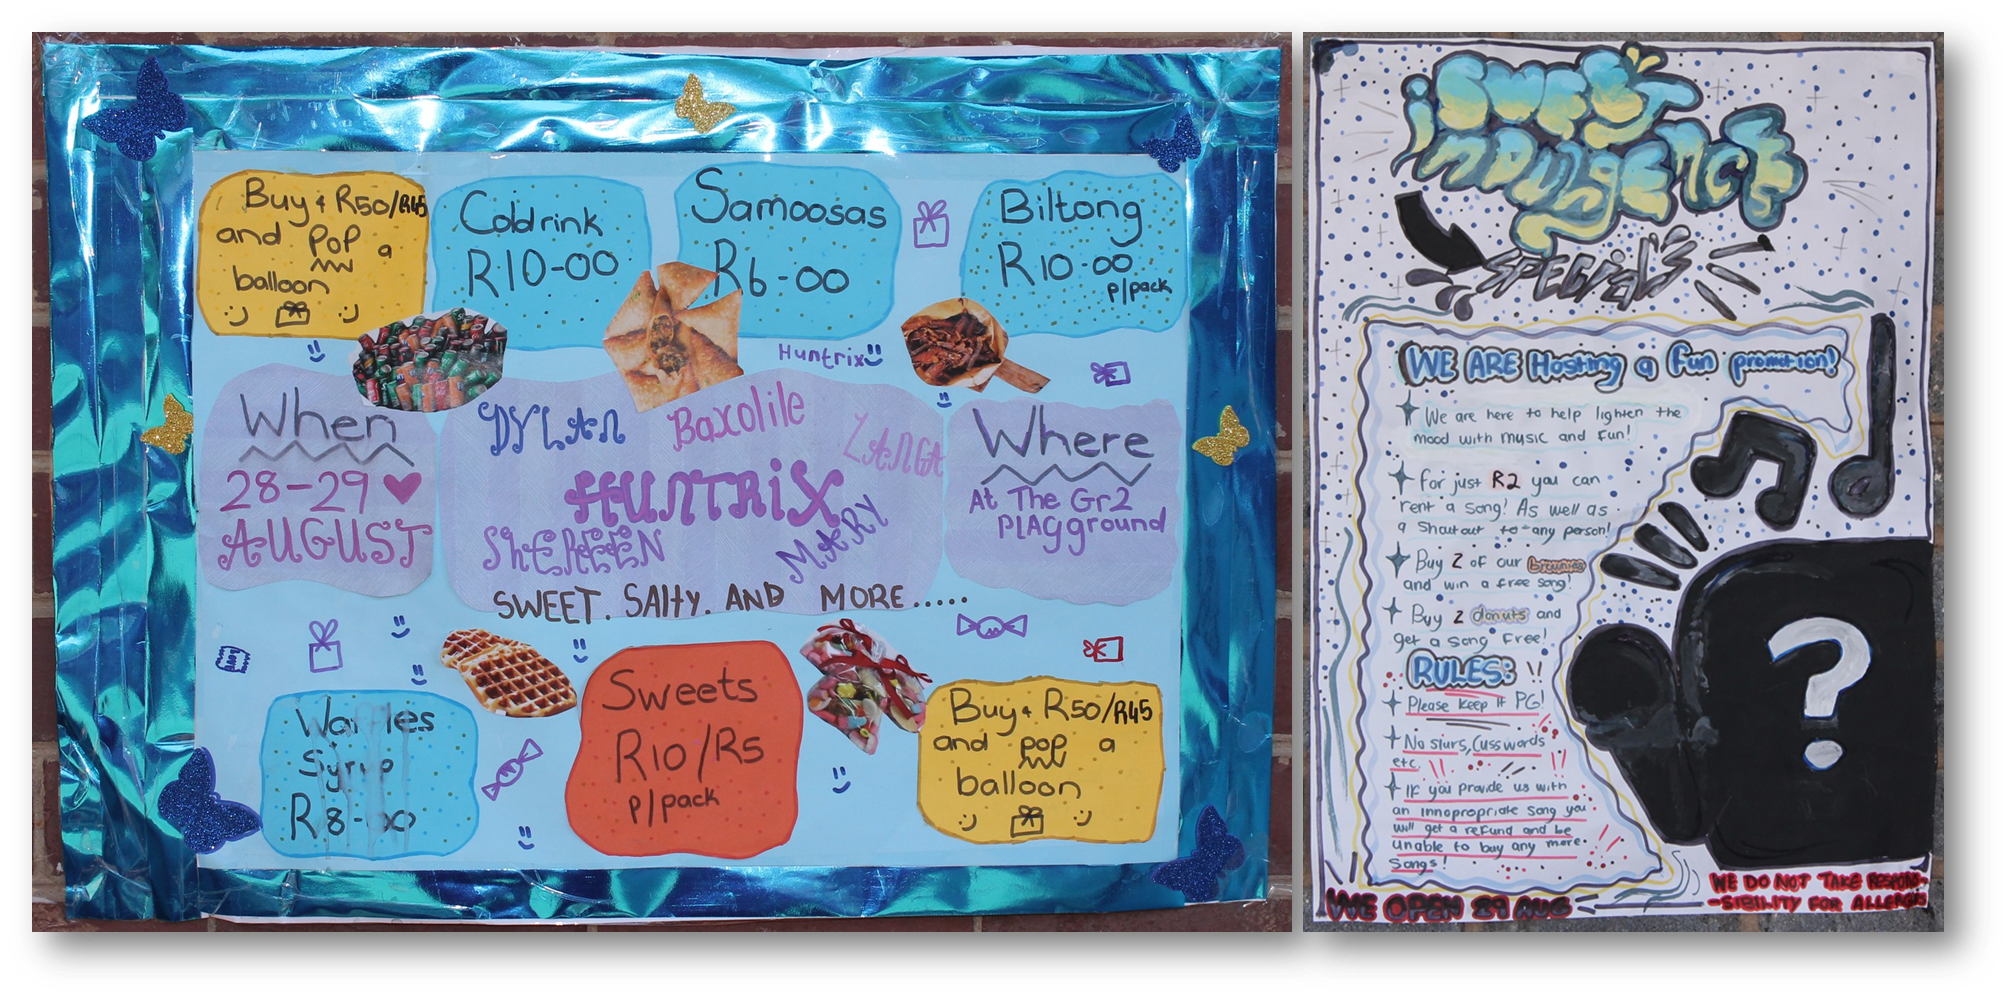 Buy + R50/R45
and pop a
balloon
Coldrink
R10-00
Samoosas
R6-00
Biltong
R10-00
p/pack
Huntrix
When
28-29
AUGUST
DYLAN
Baxolile
LANGA
HUNTRIX
SHEREEN
MARY
Where
At The Gr2
PlAyground
SWEET. SAlty. AND MORE.....
Waffles
Syrup
R8-00
Sweets
R10/R5
p/pack
Buy + R50/R45
and pop a
balloon
SWEET
iNDULgENCE
SPECiAl'S
WE ARE Hosting a fun promotion!
We are here to help lighten the
mood with music and fun!
For just R2 you can
rent a song! As well as
a shoutout to any person!
Buy 2 of our brownies
and win a free song!
Buy 2 donuts and
get a song free!
RULES: !!
Please keep it PG!
No slurs, Cuss words
etc.
If you provide us with
an innopropriate song you
will get a refund and be
unable to buy any more
songs!
?
WE OPEN 29 AUG
WE DO NOT TAKE RESPON-
-SIBILITY FOR ALLERGIES